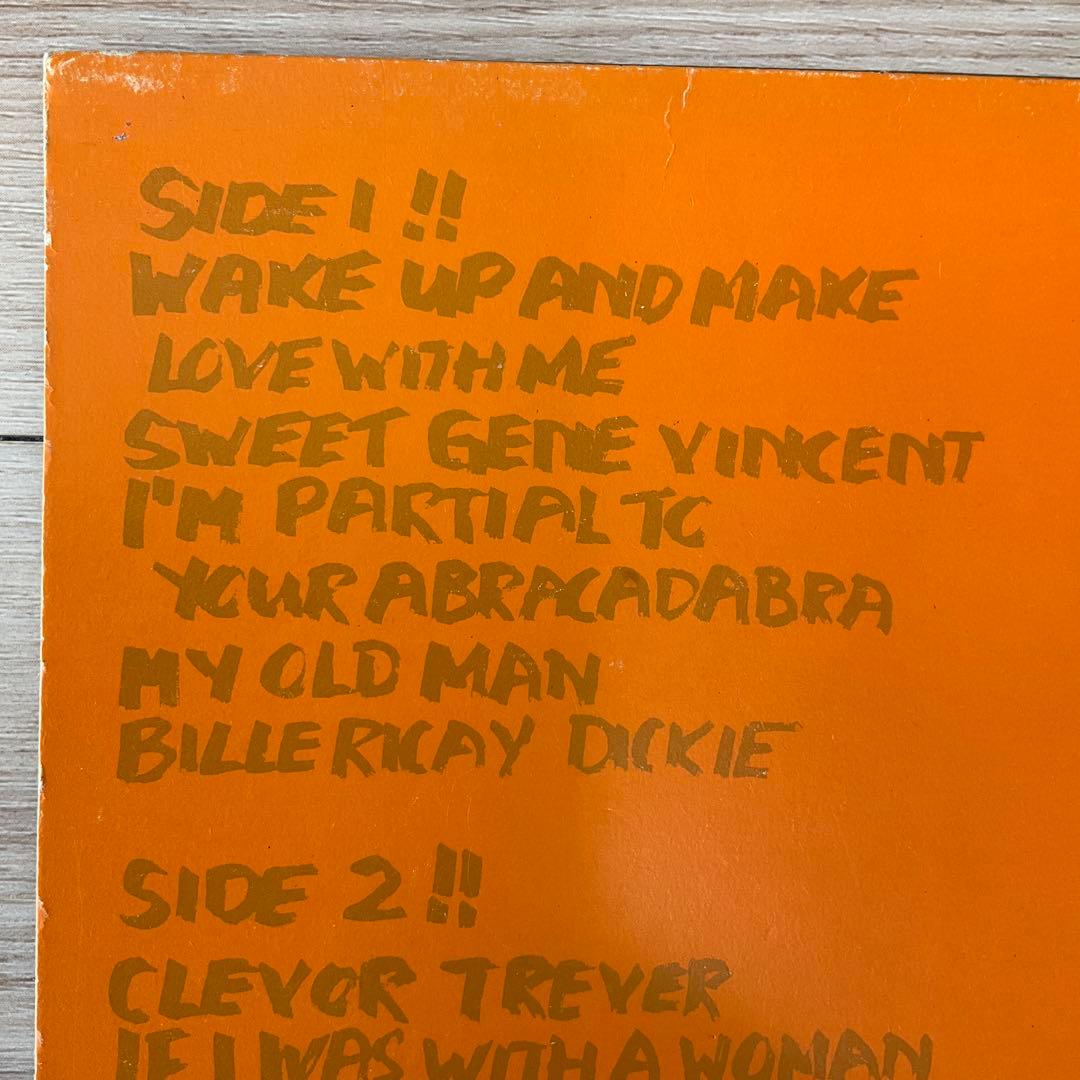 SIDE 1 !!
WAKE UP AND MAKE
LOVE WITH ME
SWEET GENE VINCENT
I'M PARTIAL TO
YOUR ABRACADABRA
MY OLD MAN
BILLERICAY DICKIE
SIDE 2 !!
CLEVOR TREVER
IF I WAS WITH A WOMAN